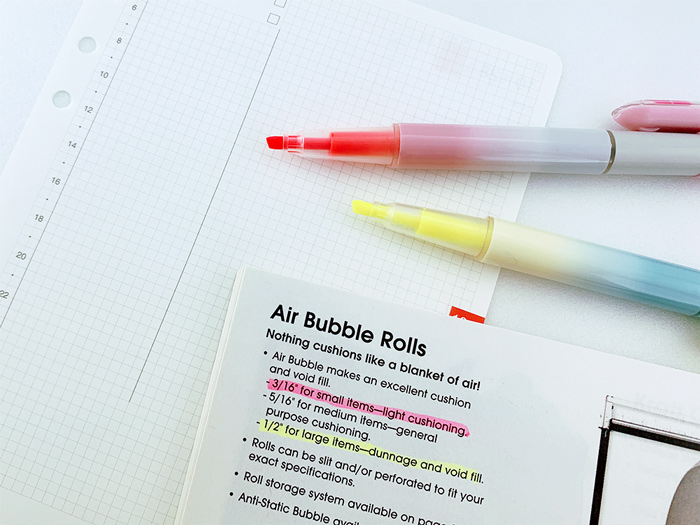 6
8
10
12
14
16
18
20
22
Air Bubble Rolls
Nothing cushions like a blanket of air!
• Air Bubble makes an excellent cushion
and void fill.
- 3/16" for small items—light cushioning.
- 5/16" for medium items—general
purpose cushioning.
- 1/2" for large items—dunnage and void fill.
• Rolls can be slit and/or perforated to fit your
exact specifications.
• Roll storage system available on
• Anti-Static Bubble